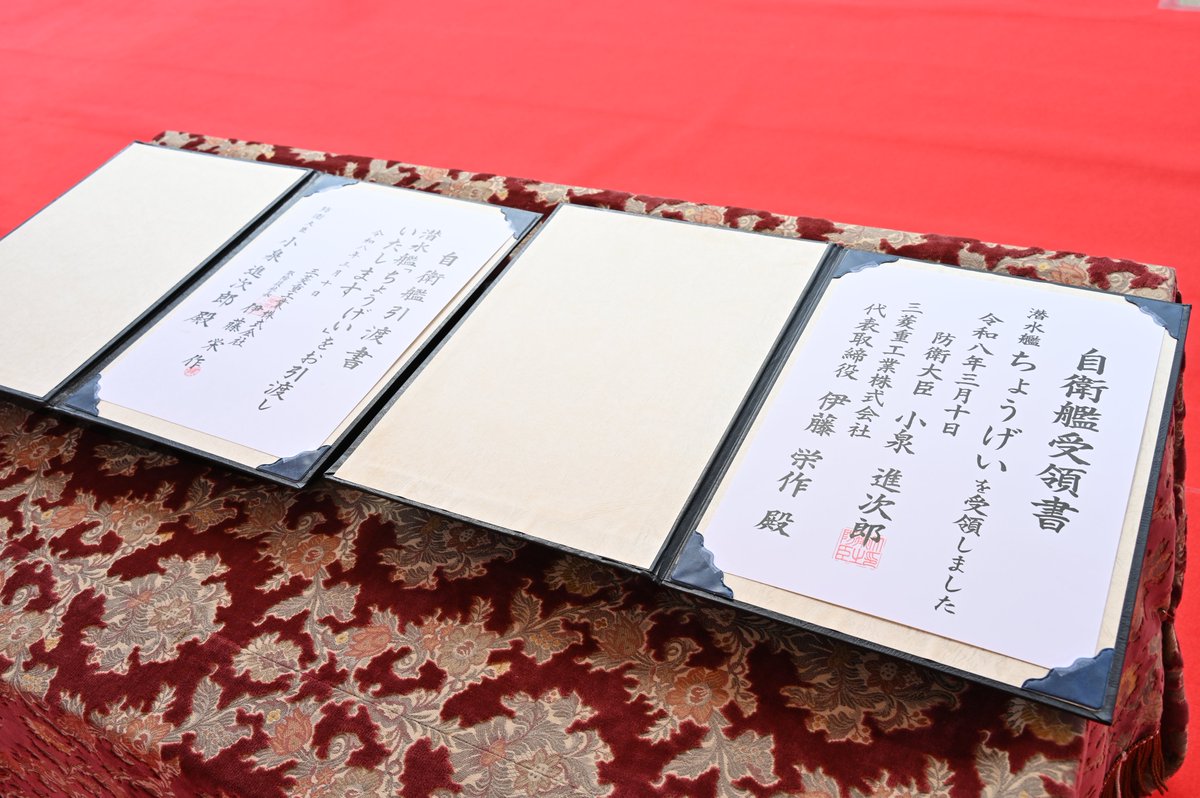 自衛艦受領書
潜水艦ちょうげいを受領しました
令和八年三月十日
防衛大臣 小泉 進次郎
三菱重工業株式会社
代表取締役 伊藤 栄作 殿
自衛艦引渡書
潜水艦「ちょうげい」をお引渡し
いたします
令和八年三月十日
三菱重工業株式会社
伊藤 栄作
防衛大臣 小泉 進次郎 殿